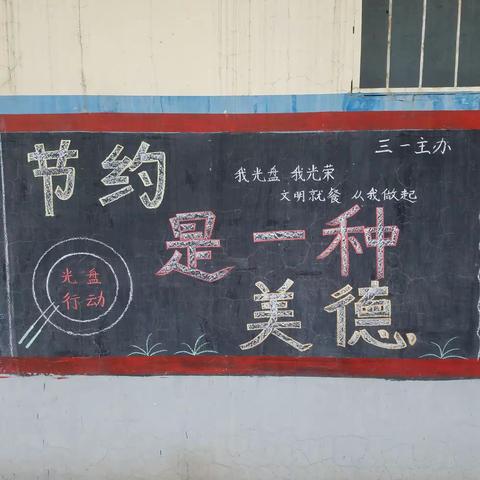 三一主办
节约
我光盘 我光荣
文明就餐 从我做起
是一种
光盘
行动
美德